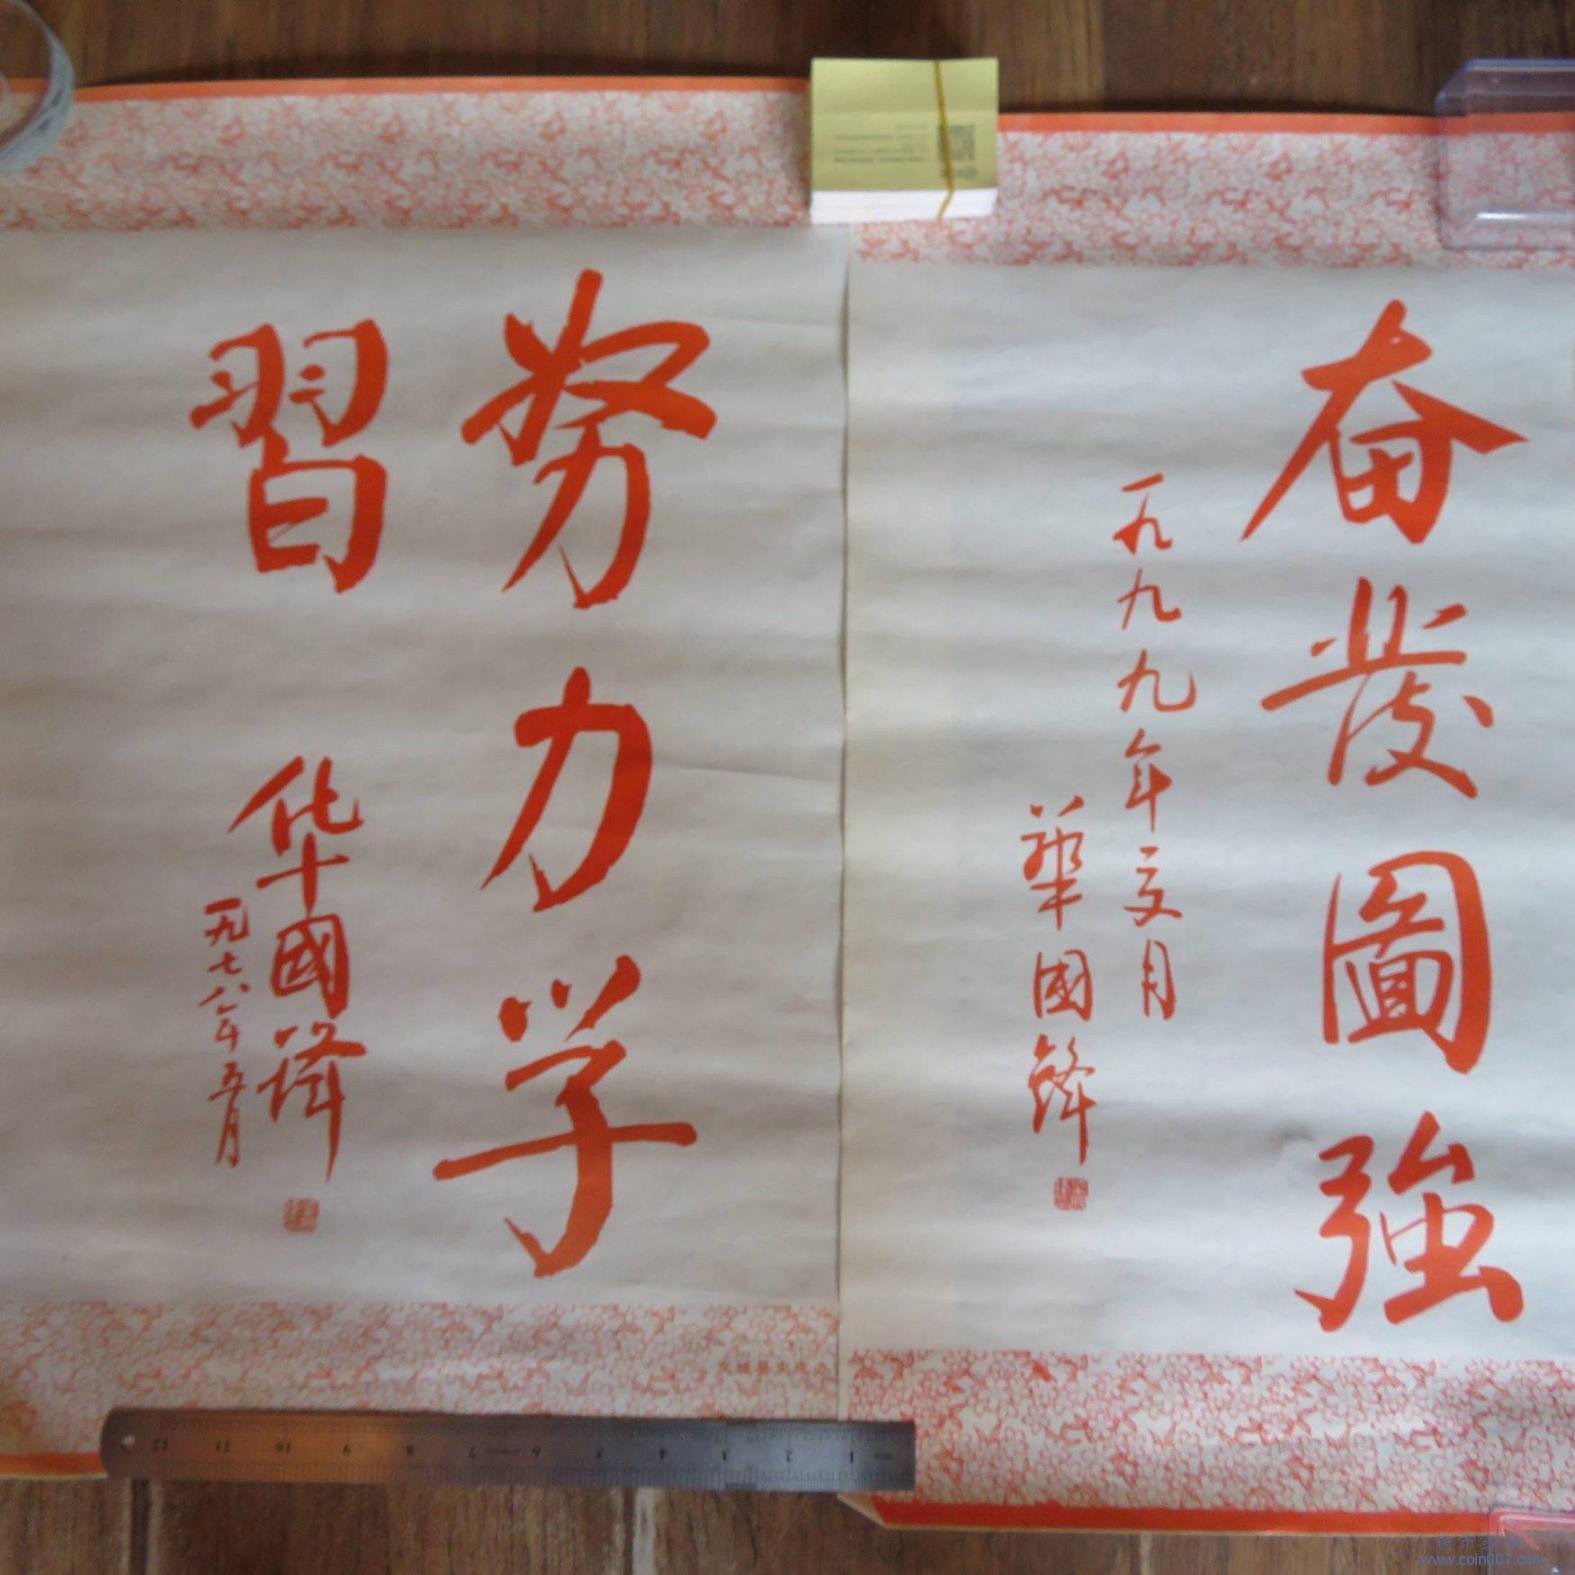 奋發圖強
一九九九年
華國鋒
努力学
習
华國锋
一九七八年五月
1 2 3 4 5 6 7 8 9 10 11 12
www.coin007.com